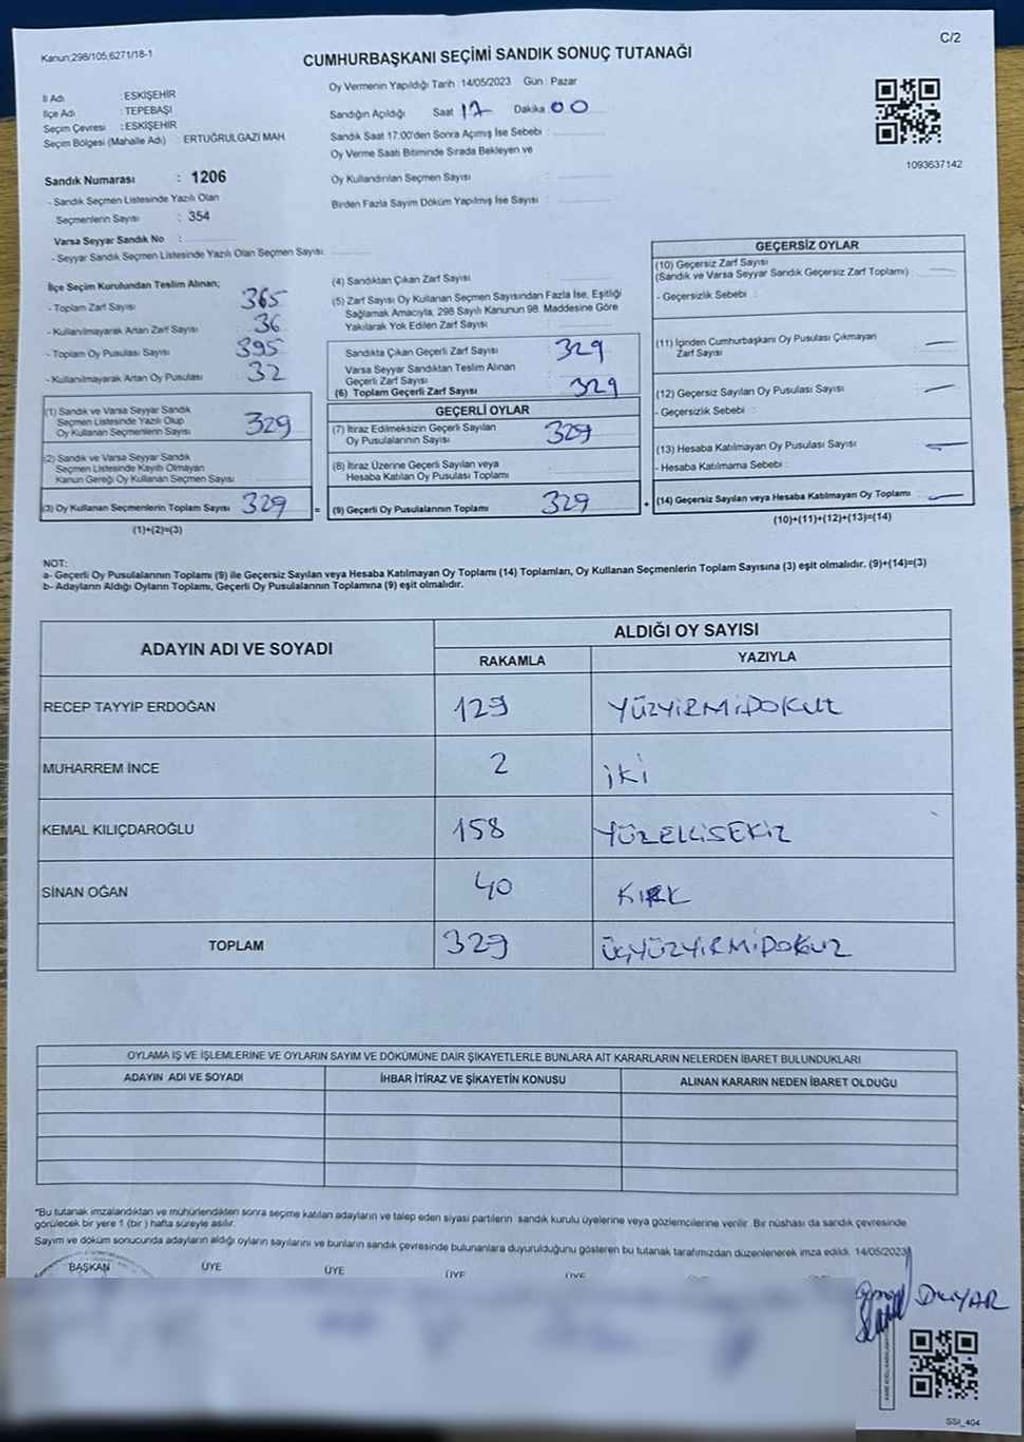 Kanun;298/105;6271/18-1
C/2
CUMHURBAŞKANI SEÇİMİ SANDIK SONUÇ TUTANAĞI
İl Adı : ESKİŞEHİR
İlçe Adı : TEPEBAŞI
Seçim Çevresi : ESKİŞEHİR
Seçim Bölgesi (Mahalle Adı) : ERTUĞRULGAZİ MAH
Sandık Numarası : 1206
- Sandık Seçmen Listesinde Yazılı Olan
Seçmenlerin Sayısı : 354
Varsa Seyyar Sandık No :
- Seyyar Sandık Seçmen Listesinde Yazılı Olan Seçmen Sayısı:
Oy Vermenin Yapıldığı Tarih : 14/05/2023 Gün : Pazar
Sandığın Açıldığı Saat 17 Dakika 00
Sandık Saat 17:00'den Sonra Açımış İse Sebebi :
Oy Verme Saati Bitiminde Sırada Bekleyen ve
Oy Kullandırılan Seçmen Sayısı :
Birden Fazla Sayım Döküm Yapılmış İse Sayısı :
1093637142
İlçe Seçim Kurulundan Teslim Alınan;
- Toplam Zarf Sayısı 365
- Kullanılmayarak Artan Zarf Sayısı 36
- Toplam Oy Pusulası Sayısı 395
- Kullanılmayarak Artan Oy Pusulası 32
(1) Sandık ve Varsa Seyyar Sandık
Seçmen Listesinde Yazılı Olup
Oy Kullanan Seçmenlerin Sayısı 329
(2) Sandık ve Varsa Seyyar Sandık
Seçmen Listesinde Kayıtlı Olmayan
Kanun Gereği Oy Kullanan Seçmen Sayısı
(3) Oy Kullanan Seçmenlerin Toplam Sayısı 329 =
(1)+(2)=(3)
(4) Sandıktan Çıkan Zarf Sayısı
(5) Zarf Sayısı Oy Kullanan Seçmen Sayısından Fazla İse, Eşitliği
Sağlamak Amacıyla, 298 Sayılı Kanunun 98. Maddesine Göre
Yakılarak Yok Edilen Zarf Sayısı
Sandıkta Çıkan Geçerli Zarf Sayısı 329
Varsa Seyyar Sandıktan Teslim Alınan
Geçerli Zarf Sayısı
(6) Toplam Geçerli Zarf Sayısı 329
GEÇERLİ OYLAR
(7) İtiraz Edilmeksizin Geçerli Sayılan
Oy Pusulalarının Sayısı 329
(8) İtiraz Üzerine Geçerli Sayılan veya
Hesaba Katılan Oy Pusulası Toplamı
(9) Geçerli Oy Pusulalarının Toplamı 329 +
GEÇERSİZ OYLAR
(10) Geçersiz Zarf Sayısı
(Sandık ve Varsa Seyyar Sandık Geçersiz Zarf Toplamı) —
- Geçersizlik Sebebi :
(11) İçinden Cumhurbaşkanı Oy Pusulası Çıkmayan
Zarf Sayısı —
(12) Geçersiz Sayılan Oy Pusulası Sayısı —
- Geçersizlik Sebebi :
(13) Hesaba Katılmayan Oy Pusulası Sayısı —
- Hesaba Katılmama Sebebi :
(14) Geçersiz Sayılan veya Hesaba Katılmayan Oy Toplamı —
(10)+(11)+(12)+(13)=(14)
NOT:
a- Geçerli Oy Pusulalarının Toplamı (9) ile Geçersiz Sayılan veya Hesaba Katılmayan Oy Toplamı (14) Toplamları, Oy Kullanan Seçmenlerin Toplam Sayısına (3) eşit olmalıdır. (9)+(14)=(3)
b- Adayların Aldığı Oyların Toplamı, Geçerli Oy Pusulalarının Toplamına (9) eşit olmalıdır.
ADAYIN ADI VE SOYADI
ALDIĞI OY SAYISI
RAKAMLA YAZIYLA
RECEP TAYYİP ERDOĞAN 129 YÜZYİRMİDOKUZ
MUHARREM İNCE 2 İKİ
KEMAL KILIÇDAROĞLU 158 YÜZELLİSEKİZ
SİNAN OĞAN 40 KIRK
TOPLAM 329 ÜÇYÜZYİRMİDOKUZ
OYLAMA İŞ VE İŞLEMLERİNE VE OYLARIN SAYIM VE DÖKÜMÜNE DAİR ŞİKAYETLERLE BUNLARA AİT KARARLARIN NELERDEN İBARET BULUNDUKLARI
ADAYIN ADI VE SOYADI İHBAR İTİRAZ VE ŞİKAYETİN KONUSU ALINAN KARARIN NEDEN İBARET OLDUĞU
*Bu tutanak imzalandıktan ve mühürlendikten sonra seçime katılan adayların ve talep eden siyasi partilerin sandık kurulu üyelerine veya gözlemcilerine verilir. Bir nüshası da sandık çevresinde
görülecek bir yere 1 (bir) hafta süreyle asılır.
Sayım ve döküm sonucunda adayların aldığı oyların sayılarını ve bunların sandık çevresinde bulunanlara duyurulduğunu gösteren bu tutanak tarafımızdan düzenlenerek imza edildi. 14/05/2023
BAŞKAN ÜYE ÜYE ÜYE ÜYE
DUYAR
SSI_404